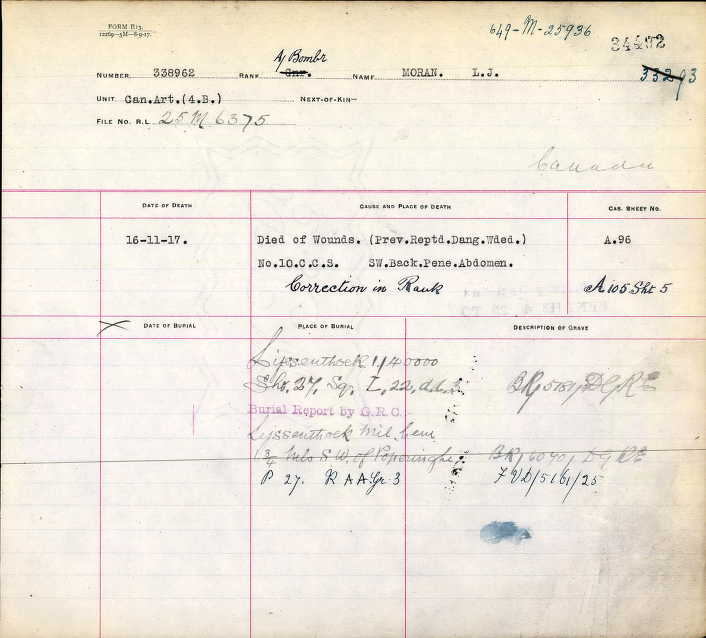 FORM R13.
12269—5M—8-9-17.
649-M-25936
34432
33293
A/Bombr
NUMBER 338962 RANK Gnr. NAME MORAN. L.J.
UNIT Can.Art.(4.B.) NEXT-OF-KIN—
FILE NO. R.L. 25 M 6375
Canada
DATE OF DEATH CAUSE AND PLACE OF DEATH CAS. SHEET NO.
16-11-17. Died of Wounds. (Prev.Reptd.Dang.Wded.) A.96
No.10.C.C.S. SW.Back.Pene.Abdomen.
Correction in Rank A105 Sht 5
DATE OF BURIAL PLACE OF BURIAL DESCRIPTION OF GRAVE
Lijssenthoek 1/40000
Sht. 27, Sq. L, 22, d.d. BR, 5781, DGRE
Burial Report by G.R.C.
Lijssenthoek Mil Cem
(3/4 Mls S W. of Poperinghe) BR, 6040, DGRE
P 27. R A A Gr 3 FVD/5161/25